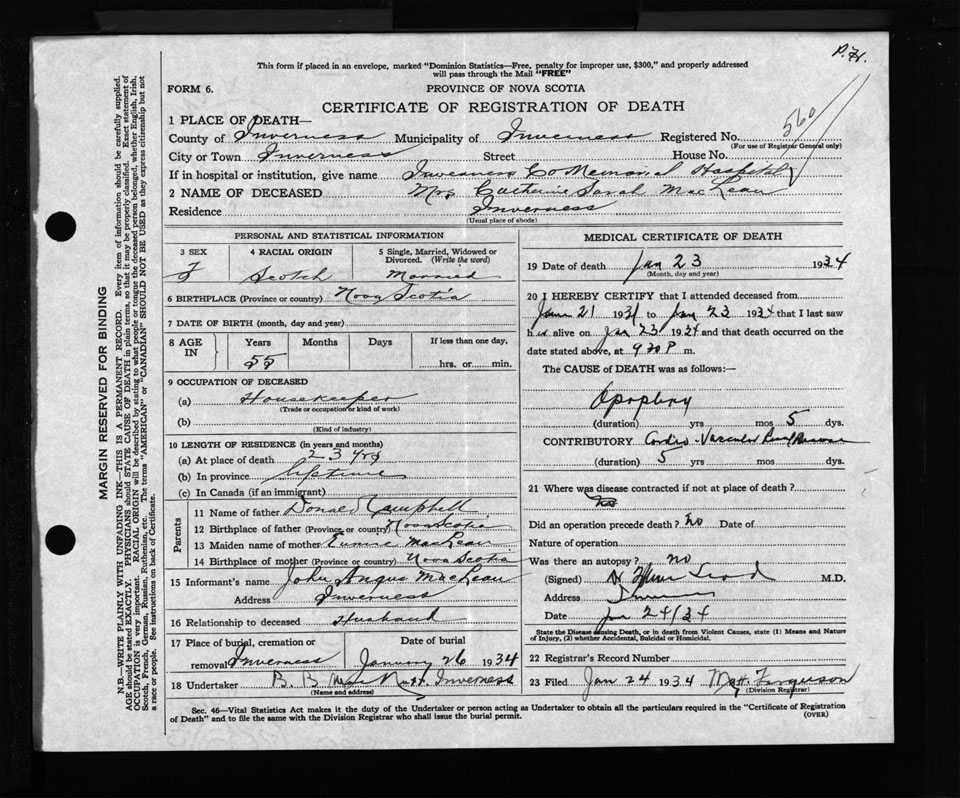 P.H.
This form if placed in an envelope, marked "Dominion Statistics—Free, penalty for improper use, $300," and properly addressed
will pass through the Mail "FREE"
FORM 6. PROVINCE OF NOVA SCOTIA
CERTIFICATE OF REGISTRATION OF DEATH
560
1 PLACE OF DEATH—
County of Inverness Municipality of Inverness Registered No.
(For use of Registrar General only)
City or Town Inverness Street House No.
If in hospital or institution, give name Inverness Co Memorial Hospital
2 NAME OF DECEASED Mrs Catherine Sarah MacLean
Residence Inverness
(Usual place of abode)
PERSONAL AND STATISTICAL INFORMATION
3 SEX 4 RACIAL ORIGIN 5 Single, Married, Widowed or
Divorced. (Write the word)
F Scotch Married
6 BIRTHPLACE (Province or country) Nova Scotia
7 DATE OF BIRTH (month, day and year)
8 AGE IN Years Months Days If less than one day,
55 hrs. or min.
9 OCCUPATION OF DECEASED
(a) Housekeeper
(Trade or occupation or kind of work)
(b)
(Kind of industry)
10 LENGTH OF RESIDENCE (in years and months)
(a) At place of death 23 yrs
(b) In province lifetime
(c) In Canada (if an immigrant)
Parents
11 Name of father Donald Campbell
12 Birthplace of father (Province or country) Nova Scotia
13 Maiden name of mother MacLean
14 Birthplace of mother (Province or country) Nova Scotia
15 Informant's name John Angus MacLean
Address Inverness
16 Relationship to deceased Husband
17 Place of burial, cremation or Date of burial
removal Inverness January 26 1934
18 Undertaker B. B. Inverness
(Name and address)
MEDICAL CERTIFICATE OF DEATH
19 Date of death Jan 23 1934
(Month, day and year)
20 I HEREBY CERTIFY that I attended deceased from
21 193 to Jan 23 1934 that I last saw
h alive on Jan 23 1934 and that death occurred on
date stated above, at 9 P m.
The CAUSE of DEATH was as follows:—
(duration) yrs mos 5 dys.
CONTRIBUTORY Cardio-Vascular Renal Disease
(duration) 5 yrs mos dys.
21 Where was disease contracted if not at place of death?
Did an operation precede death? No Date of
Nature of operation
Was there an autopsy? No
(Signed) M.D.
Address
Date Jan 24/34
State the Disease causing Death, or in death from Violent Causes, state (1) Means and Nature
of Injury, (2) whether Accidental, Suicidal or Homicidal.
22 Registrar's Record Number
23 Filed Jan 24 1934 Matt. Ferguson
(Division Registrar)
Sec. 46—Vital Statistics Act makes it the duty of the Undertaker or person acting as Undertaker to obtain all the particulars required in the "Certificate of Registration
of Death" and to file the same with the Division Registrar who shall issue the burial permit. (OVER)
MARGIN RESERVED FOR BINDING
N.B.—WRITE PLAINLY WITH UNFADING INK—THIS IS A PERMANENT RECORD. Every item of information should be carefully supplied.
AGE should be stated EXACTLY. PHYSICIANS should STATE CAUSE OF DEATH in plain terms, so that it may be properly classified. Exact statement of
OCCUPATION is very important. RACIAL ORIGIN will be described by stating to what people or tongue the deceased person belonged, whether English, Irish,
Scotch, French, German, Russian, Ruthenian, etc. The terms "AMERICAN" or "CANADIAN" SHOULD NOT BE USED as they express citizenship but not
a race or people. See instructions on back of Certificate.